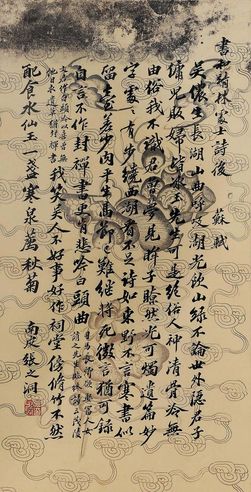 書和靖林處士詩後 蘇軾
吳儂生長湖山曲呼吸湖光飲山綠不論世外隱君子
傭兒販婦皆冰玉先生可是絕俗人神清骨冷無
由俗我不識君曾夢見眸子瞭然光可燭遺篇妙
字處〻有步繞西湖看不足詩如東野不言寒書似
留臺差少肉平生高節已難繼將死微言猶可錄
自言不作封禪書更肯悲吟白頭曲
我笑吳人不好事好作祠堂傍脩竹不然
配食水仙王一盞寒泉薦秋菊 南皮張之洞